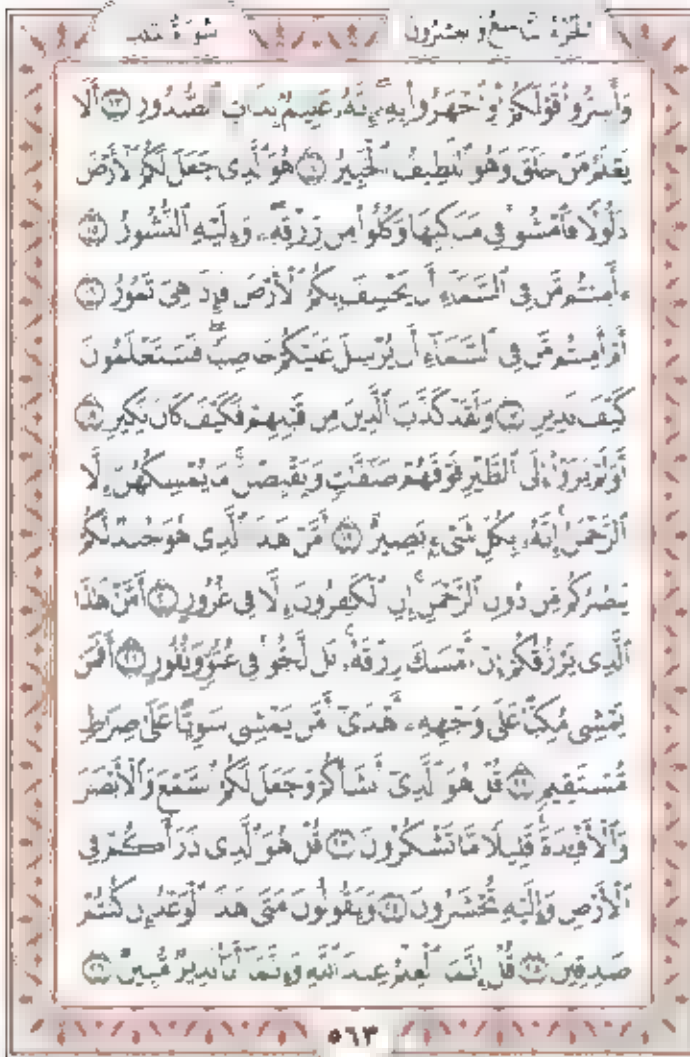 سُورَةُ المُلك الجُزْءُ التَّاسِعُ وَالعِشْرُونَ
وَأَسِرُّوا۟ قَوْلَكُمْ أَوِ ٱجْهَرُوا۟ بِهِۦٓ إِنَّهُۥ عَلِيمٌۢ بِذَاتِ ٱلصُّدُورِ ١٣ أَلَا
يَعْلَمُ مَنْ خَلَقَ وَهُوَ ٱللَّطِيفُ ٱلْخَبِيرُ ١٤ هُوَ ٱلَّذِى جَعَلَ لَكُمُ ٱلْأَرْضَ
ذَلُولًا فَٱمْشُوا۟ فِى مَنَاكِبِهَا وَكُلُوا۟ مِن رِّزْقِهِۦ وَإِلَيْهِ ٱلنُّشُورُ ١٥
ءَأَمِنتُم مَّن فِى ٱلسَّمَآءِ أَن يَخْسِفَ بِكُمُ ٱلْأَرْضَ فَإِذَا هِىَ تَمُورُ ١٦
أَمْ أَمِنتُم مَّن فِى ٱلسَّمَآءِ أَن يُرْسِلَ عَلَيْكُمْ حَاصِبًا فَسَتَعْلَمُونَ
كَيْفَ نَذِيرِ ١٧ وَلَقَدْ كَذَّبَ ٱلَّذِينَ مِن قَبْلِهِمْ فَكَيْفَ كَانَ نَكِيرِ ١٨
أَوَلَمْ يَرَوْا۟ إِلَى ٱلطَّيْرِ فَوْقَهُمْ صَٰٓفَّٰتٍ وَيَقْبِضْنَ مَا يُمْسِكُهُنَّ إِلَّا
ٱلرَّحْمَٰنُ إِنَّهُۥ بِكُلِّ شَىْءٍۭ بَصِيرٌ ١٩ أَمَّنْ هَٰذَا ٱلَّذِى هُوَ جُندٌ لَّكُمْ
يَنصُرُكُم مِّن دُونِ ٱلرَّحْمَٰنِ إِنِ ٱلْكَٰفِرُونَ إِلَّا فِى غُرُورٍ ٢٠ أَمَّنْ هَٰذَا
ٱلَّذِى يَرْزُقُكُمْ إِنْ أَمْسَكَ رِزْقَهُۥ بَل لَّجُّوا۟ فِى عُتُوٍّ وَنُفُورٍ ٢١ أَفَمَن
يَمْشِى مُكِبًّا عَلَىٰ وَجْهِهِۦٓ أَهْدَىٰٓ أَمَّن يَمْشِى سَوِيًّا عَلَىٰ صِرَٰطٍ
مُّسْتَقِيمٍ ٢٢ قُلْ هُوَ ٱلَّذِىٓ أَنشَأَكُمْ وَجَعَلَ لَكُمُ ٱلسَّمْعَ وَٱلْأَبْصَٰرَ
وَٱلْأَفْـِٔدَةَ قَلِيلًا مَّا تَشْكُرُونَ ٢٣ قُلْ هُوَ ٱلَّذِى ذَرَأَكُمْ فِى
ٱلْأَرْضِ وَإِلَيْهِ تُحْشَرُونَ ٢٤ وَيَقُولُونَ مَتَىٰ هَٰذَا ٱلْوَعْدُ إِن كُنتُمْ
صَٰدِقِينَ ٢٥ قُلْ إِنَّمَا ٱلْعِلْمُ عِندَ ٱللَّهِ وَإِنَّمَآ أَنَا۠ نَذِيرٌ مُّبِينٌ ٢٦
٥٦٣